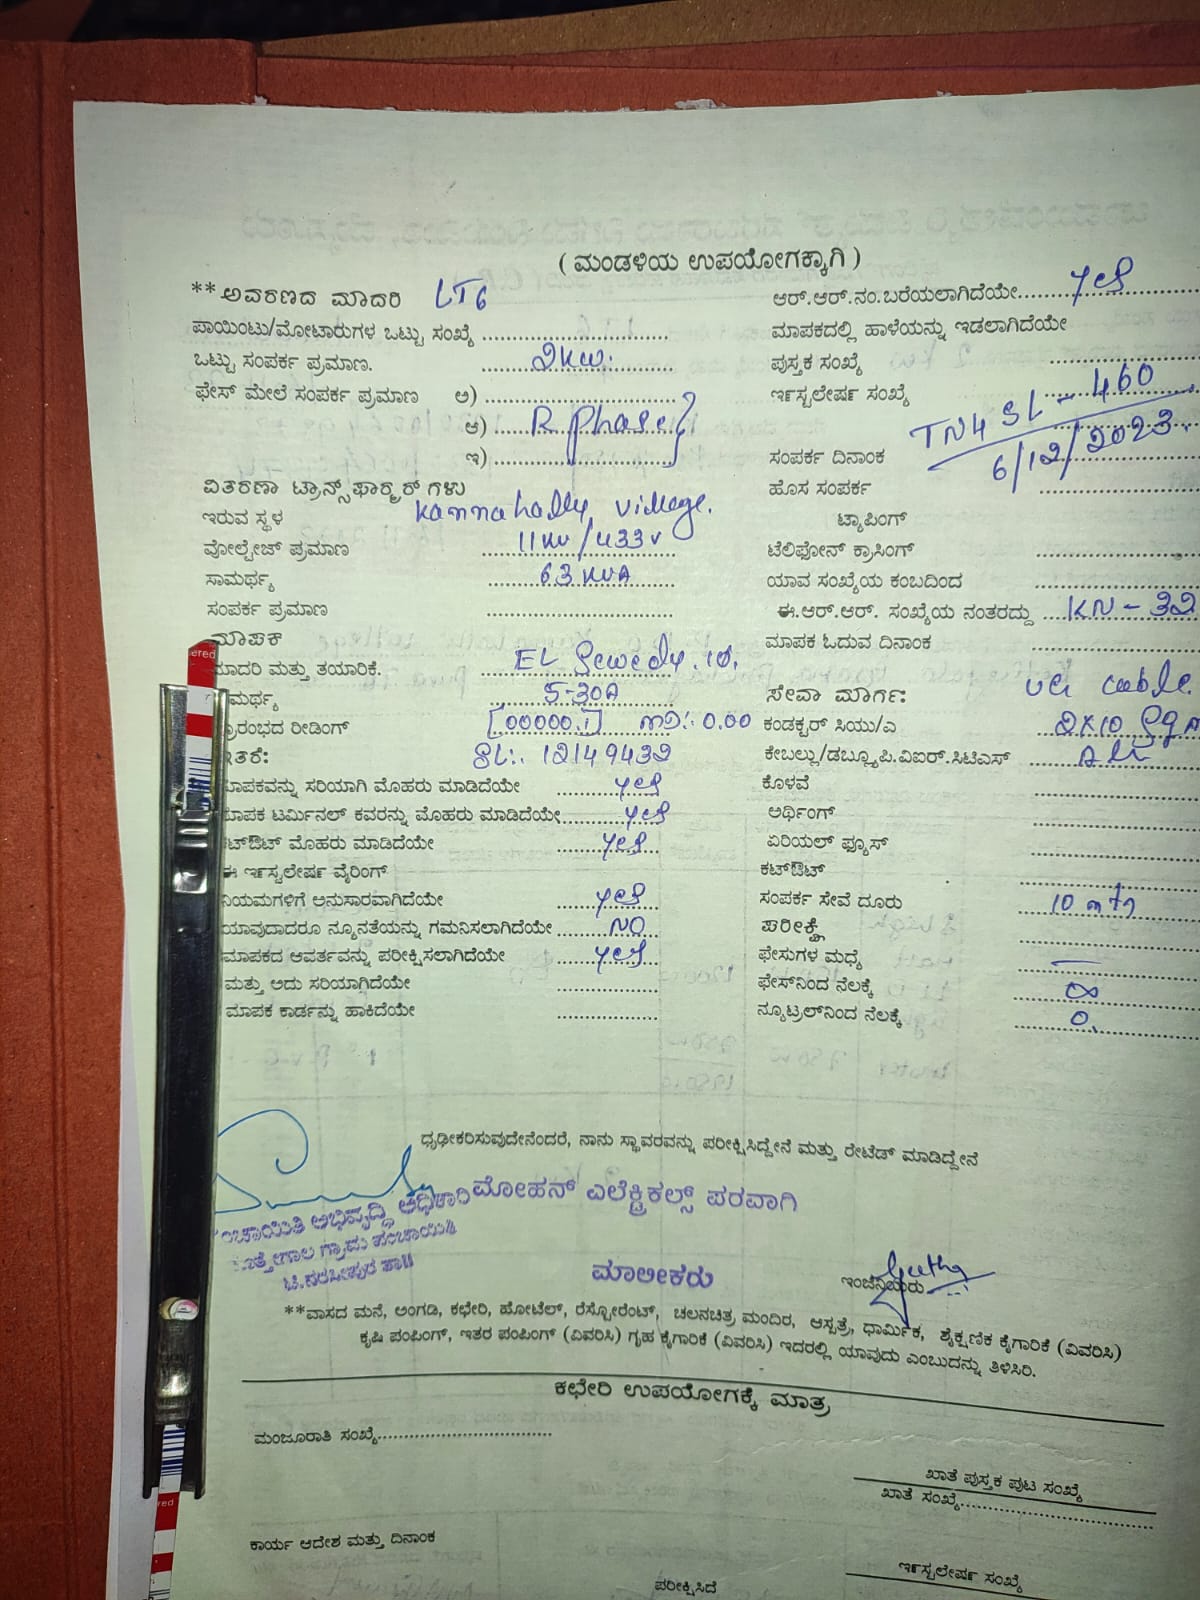 ( ಮಂಡಳಿಯ ಉಪಯೋಗಕ್ಕಾಗಿ )
**ಅವರಣದ ಮಾದರಿ LT6
ಆರ್.ಆರ್.ನಂ.ಬರೆಯಲಾಗಿದೆಯೇ.......... yes
ಪಾಯಿಂಟು/ಮೋಟಾರುಗಳ ಒಟ್ಟು ಸಂಖ್ಯೆ
ಮಾಪಕದಲ್ಲಿ ಹಾಳೆಯನ್ನು ಇಡಲಾಗಿದೆಯೇ
ಒಟ್ಟು ಸಂಪರ್ಕ ಪ್ರಮಾಣ. 2KW.
ಪುಸ್ತಕ ಸಂಖ್ಯೆ
ಫೇಸ್ ಮೇಲೆ ಸಂಪರ್ಕ ಪ್ರಮಾಣ ಅ)
ಇನ್ಸ್ಟಲೇಷನ್ ಸಂಖ್ಯೆ TN4 SL - 460
ಆ) R phase}
ಇ)
ಸಂಪರ್ಕ ದಿನಾಂಕ 6/12/2023
ವಿತರಣಾ ಟ್ರಾನ್ಸ್‌ಫಾರ್ಮರ್‌ಗಳು
ಹೊಸ ಸಂಪರ್ಕ
ಇರುವ ಸ್ಥಳ Kannahally village.
ಟ್ಯಾಪಿಂಗ್
ವೋಲ್ಟೇಜ್ ಪ್ರಮಾಣ 11KV/433V
ಟೆಲಿಫೋನ್ ಕ್ರಾಸಿಂಗ್
ಸಾಮರ್ಥ್ಯ 63 KVA
ಯಾವ ಸಂಖ್ಯೆಯ ಕಂಬದಿಂದ
ಸಂಪರ್ಕ ಪ್ರಮಾಣ
ಈ.ಆರ್.ಆರ್. ಸಂಖ್ಯೆಯ ನಂತರದ್ದು KN - 32
ಮಾಪಕ
ಮಾಪಕ ಓದುವ ದಿನಾಂಕ
ಮಾದರಿ ಮತ್ತು ತಯಾರಿಕೆ. EL Sewedy.
ಸೇವಾ ಮಾರ್ಗ: UG cable.
ಮರ್ಥ್ಯ 5-30A
ರಂಭದ ರೀಡಿಂಗ್ [00000.1] MD:. 0.00
ಕಂಡಕ್ಟರ್ ಸಿಯು/ಎ 2X10 Sq
ತರೆ: SL:. 12149432
ಕೇಬಲ್ಲು/ಡಬ್ಲ್ಯೂ.ಪಿ.ವಿಐಆರ್.ಸಿಟಿಎಸ್
ಮಾಪಕವನ್ನು ಸರಿಯಾಗಿ ಮೊಹರು ಮಾಡಿದೆಯೇ yes
ಕೊಳವೆ
ಮಾಪಕ ಟರ್ಮಿನಲ್ ಕವರನ್ನು ಮೊಹರು ಮಾಡಿದೆಯೇ yes
ಅರ್ಥಿಂಗ್
ಕಟ್‌ಔಟ್ ಮೊಹರು ಮಾಡಿದೆಯೇ yes
ಏರಿಯಲ್ ಫ್ಯೂಸ್
ಈ ಇನ್ಸ್ಟಲೇಷನ್ ವೈರಿಂಗ್
ಕಟ್‌ಔಟ್
ನಿಯಮಗಳಿಗೆ ಅನುಸಾರವಾಗಿದೆಯೇ yes
ಸಂಪರ್ಕ ಸೇವೆ ದೂರು 10 mtr
ಯಾವುದಾದರೂ ನ್ಯೂನತೆಯನ್ನು ಗಮನಿಸಲಾಗಿದೆಯೇ NO
ಪರೀಕ್ಷೆ
ಮಾಪಕದ ಆವರ್ತವನ್ನು ಪರೀಕ್ಷಿಸಲಾಗಿದೆಯೇ yes
ಫೇಸುಗಳ ಮಧ್ಯೆ —
ಮತ್ತು ಅದು ಸರಿಯಾಗಿದೆಯೇ
ಫೇಸ್‌ನಿಂದ ನೆಲಕ್ಕೆ ∞
ಮಾಪಕ ಕಾರ್ಡನ್ನು ಹಾಕಿದೆಯೇ
ನ್ಯೂಟ್ರಲ್‌ನಿಂದ ನೆಲಕ್ಕೆ 0.
ಧೃಢೀಕರಿಸುವುದೇನೆಂದರೆ, ನಾನು ಸ್ಥಾವರವನ್ನು ಪರೀಕ್ಷಿಸಿದ್ದೇನೆ ಮತ್ತು ರೇಟೆಡ್ ಮಾಡಿದ್ದೇನೆ
ಮೋಹನ್ ಎಲೆಕ್ಟ್ರಿಕಲ್ಸ್ ಪರವಾಗಿ
ಪಂಚಾಯಿತಿ ಅಭಿವೃದ್ಧಿ ಅಧಿಕಾರಿ
ತ್ತೇಗಾಲ ಗ್ರಾಮ ಪಂಚಾಯಿತಿ
ಟಿ.ನರಸೀಪುರ ತಾ||
ಮಾಲೀಕರು
ಇಂಜಿನಿಯರು Geetha
**ವಾಸದ ಮನೆ, ಅಂಗಡಿ, ಕಛೇರಿ, ಹೋಟೆಲ್, ರೆಸ್ಟೋರೆಂಟ್, ಚಲನಚಿತ್ರ ಮಂದಿರ, ಆಸ್ಪತ್ರೆ, ಧಾರ್ಮಿಕ, ಶೈಕ್ಷಣಿಕ ಕೈಗಾರಿಕೆ (ವಿವರಿಸಿ)
ಕೃಷಿ ಪಂಪಿಂಗ್, ಇತರ ಪಂಪಿಂಗ್ (ವಿವರಿಸಿ) ಗೃಹ ಕೈಗಾರಿಕೆ (ವಿವರಿಸಿ) ಇದರಲ್ಲಿ ಯಾವುದು ಎಂಬುದನ್ನು ತಿಳಿಸಿರಿ.
ಕಛೇರಿ ಉಪಯೋಗಕ್ಕೆ ಮಾತ್ರ
ಮಂಜೂರಾತಿ ಸಂಖ್ಯೆ
ಖಾತೆ ಪುಸ್ತಕ ಪುಟ ಸಂಖ್ಯೆ
ಖಾತೆ ಸಂಖ್ಯೆ
ಕಾರ್ಯ ಆದೇಶ ಮತ್ತು ದಿನಾಂಕ
ಇನ್ಸ್ಟಲೇಷನ್ ಸಂಖ್ಯೆ
ಪರೀಕ್ಷಿಸಿದೆ